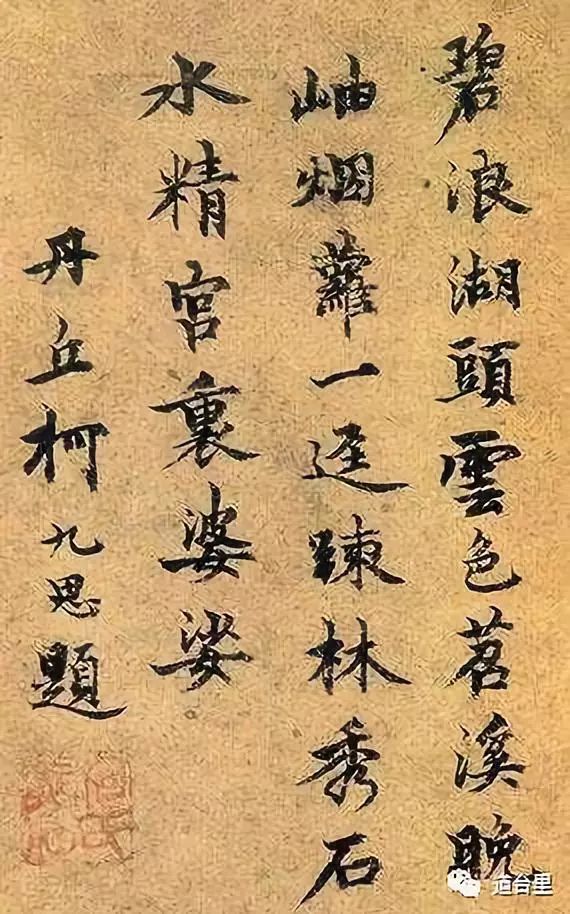 碧浪湖頭雲色苕溪晚
岫烟蘿一逕踈林秀石
水精宮裏婆娑
丹丘柯九思題
道台里